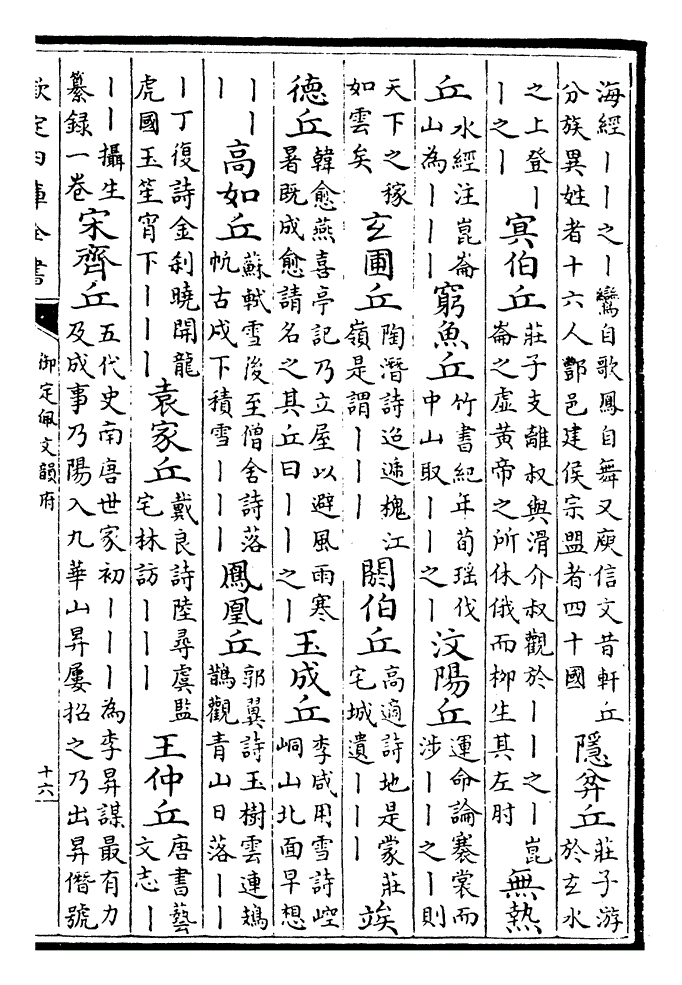 海經丨丨之丨鸞自歌鳳自舞又庾信文昔軒丘
分族異姓者十六人酆邑建侯宗盟者四十國
隱弅丘
莊子游
於玄水
之上登丨
丨之丨
㝠伯丘
莊子支離叔與滑介叔觀於丨丨之丨崑
崙之虛黃帝之所休俄而柳生其左肘
無熱
丘
水經注崑崙
山為丨丨丨
窮魚丘
竹書紀年荀瑤伐
中山取丨丨之丨
汶陽丘
運命論褰裳而
涉丨丨之丨則
天下之稼
如雲矣
玄圃丘
陶潛詩迢遞槐江
嶺是謂丨丨丨
閼伯丘
高適詩地是蒙莊
宅城遺丨丨丨
竢
德丘
韓愈燕喜亭記乃立屋以避風雨寒
暑既成愈請名之其丘曰丨丨之丨
玉成丘
李咸用雪詩崆
峒山北面早想
丨丨
丨
高如丘
蘇軾雪後至僧舍詩落
帆古戍下積雪丨丨丨
鳳凰丘
郭翼詩玉樹雲連鳷
鵲觀青山日落丨丨
丨丁復詩金刹曉開龍
虎國玉笙宵下丨丨丨
袁家丘
戴良詩陸尋虞監
宅林訪丨丨丨
王仲丘
唐書藝
文志丨
丨丨攝生
纂録一卷
宋齊丘
五代史南唐世家初丨丨丨為李昇謀最有力
及成事乃陽入九華山昇屢招之乃出昇僭號
欽定四庫全書
御定佩文韻府
十六